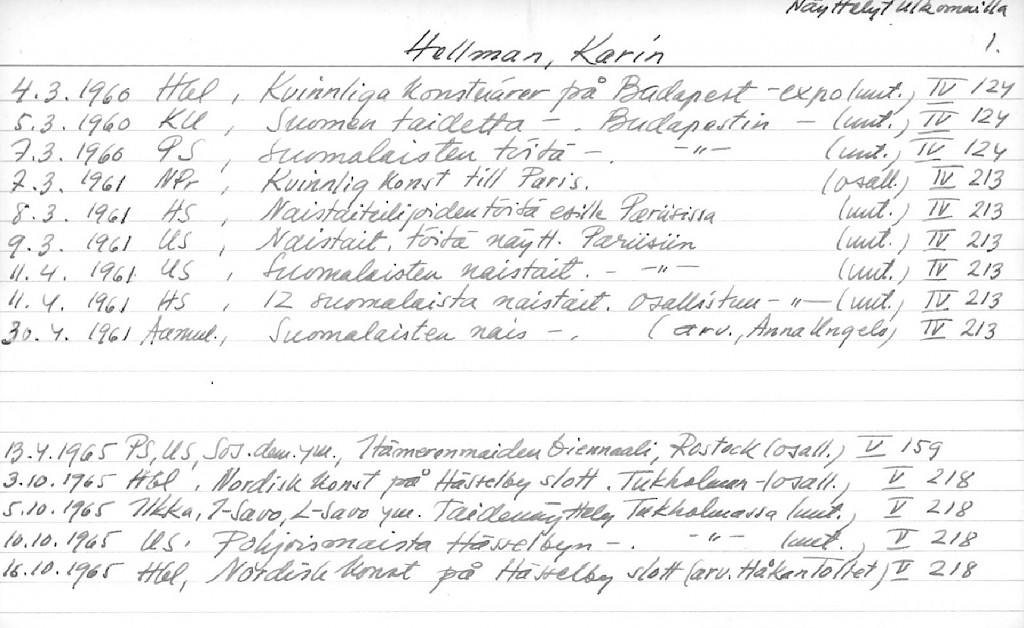 Näyttelyt ulkomailla
1.
Hellman, Karin
4.3.1960 Hbl, Kvinnliga konstnärer på Budapest-expo (uut.) IV 124
5.3.1960 KU, Suomen taidetta -. Budapestin - (uut.) IV 124
7.3.1960 PS, Suomalaisten töitä -. -"- (uut.) IV 124
7.3.1961 NPr, Kvinnlig konst till Paris. (osall.) IV 213
8.3.1961 HS, Naistaiteilijoiden töitä esille Pariisissa (uut.) IV 213
9.3.1961 US, Naistait. töitä näytt. Pariisiin (uut.) IV 213
11.4.1961 US, Suomalaisten naistait. - -"- (uut.) IV 213
11.4.1961 HS, 12 suomalaista naistait. osallistuu -"- (uut.) IV 213
30.4.1961 Aamul., Suomalaisten nais -. (arv., Anna Ungelo) IV 213
13.4.1965 PS, US, Sos.dem. ym., Itämerenmaiden biennaali, Rostock (osall.) V 159
3.10.1965 Hbl, Nordisk konst på Hässelby slott. Tukholman - (osall.) V 218
5.10.1965 Ilkka, I-Savo, L-Savo ym. Taidenäyttely Tukholmassa (uut.) V 218
10.10.1965 US. Pohjoismaista Hässelbyn -. -"- (uut.) V 218
16.10.1965 Hbl, Nordisk konst på Hässelby slott (arv. Håkan Tollet) V 218